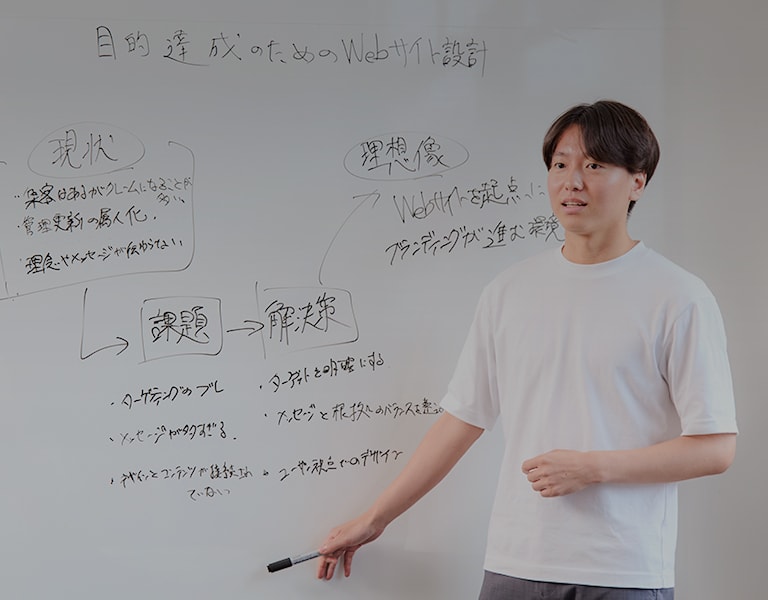 目的達成のためのWebサイト設計
現状
・集客はあるがクレームになることが
多い。
・管理更新の属人化.
・理念やメッセージが伝わらない
理想像
Webサイトを起点に
ブランディングが進む環境
課題
・ターゲティングのブレ
・メッセージが多すぎる.
・デザインとコンテンツが
ていない
解決策
・ターゲットを明確にする
・メッセージと根拠のバランスを
・ユーザー視点でのデザイン